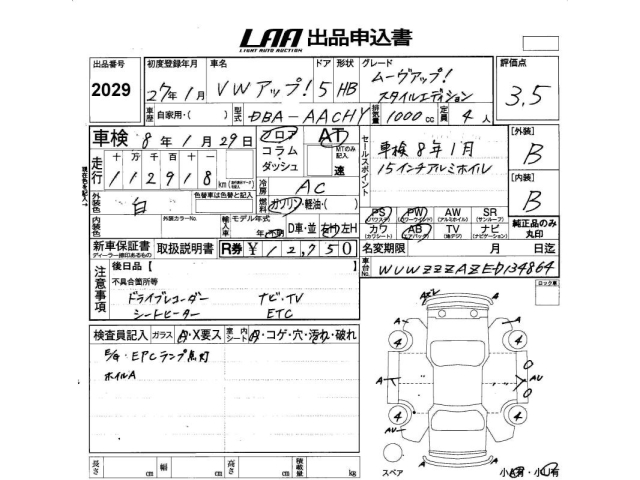 LAA 出品申込書
LIGHT AUTO AUCTION
出品番号 初度登録年月 車名 ドア 形状 グレード 評価点
2029 27年 1月 VWアップ! 5 HB ムーヴアップ! スタイルエディション 3.5
車歴 自家用・( ) 型式 DBA-AACHY 排気量 1000cc 定員 4人
車検 8年 1月 29日 フロア コラム ダッシュ AT MTのみ記入 速
セールスポイント 車検8年1月
15インチアルミホイル
[外装] B
[内装] B
現在色を記入→
走行 十万千百十一
112918 km
冷房 AC
燃料 ガソリン・軽油・( )
外装色 白 色替車は色替と記入
内装色 外装カラーNo. 輸入車 モデル年式 年・不明 D車・並 右H 左H
PS (パワステ) PW (パワーウインド) AW (アルミホイル) SR (サンルーフ)
カワ (カワシート) AB (エアバック) TV (地デジ) ナビ (ナビゲーション)
純正品のみ丸印
新車保証書 取扱説明書 R券 ¥12,750
ディーラー捺印あるもの
名変期限 月 日迄
車台No. WVWZZZAAZED134864
注意事項 後日品【
不具合箇所等
ドライブレコーダー ナビ・TV
シートヒーター ETC
ロック車
検査員記入 ガラス A・X要ス 室内シート A・コゲ・穴・汚れ・破れ
E/G・EPCランプ点灯
ホイルA
AX2 A
4 4
A A O
O
A AU
4 4
AU A A
スペア
小A有・小U有
長さ cm 幅 cm 高さ cm 積載量 kg